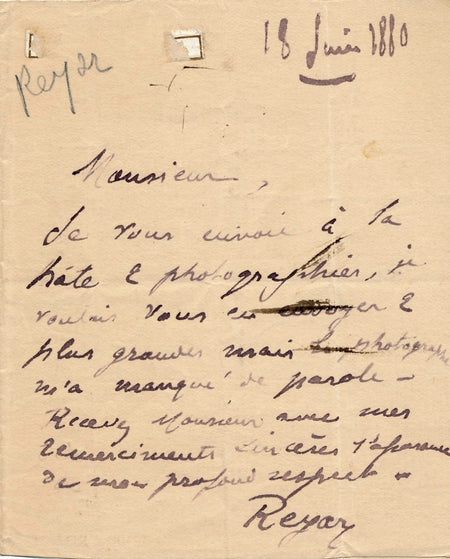 18 Juin 1880
Reyar
Monsieur,
Je vous envoie à la
hâte 2 photographies, je
voulais vous en envoyer 2
plus grandes mais photographe
m'a manqué de parole –
Recevez Monsieur avec mes
remerciments sincères l'assurance
de mon profond respect –
Reyar